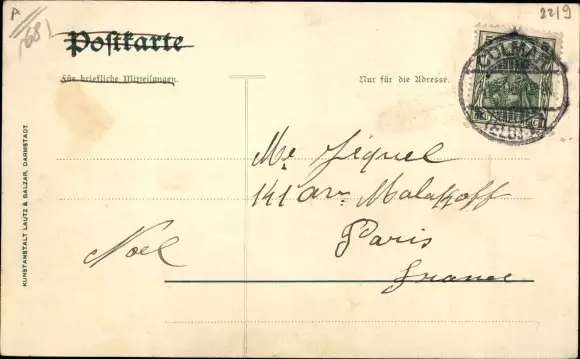 A
681
22/9
Postkarte
Für briefliche Mitteilungen.
Nur für die Adresse.
COLMAR
(ELS)
KUNSTANSTALT LAUTZ & BALZAR, DARMSTADT.
Me Jéquel
141 av. Malakoff
Paris
France
Noel